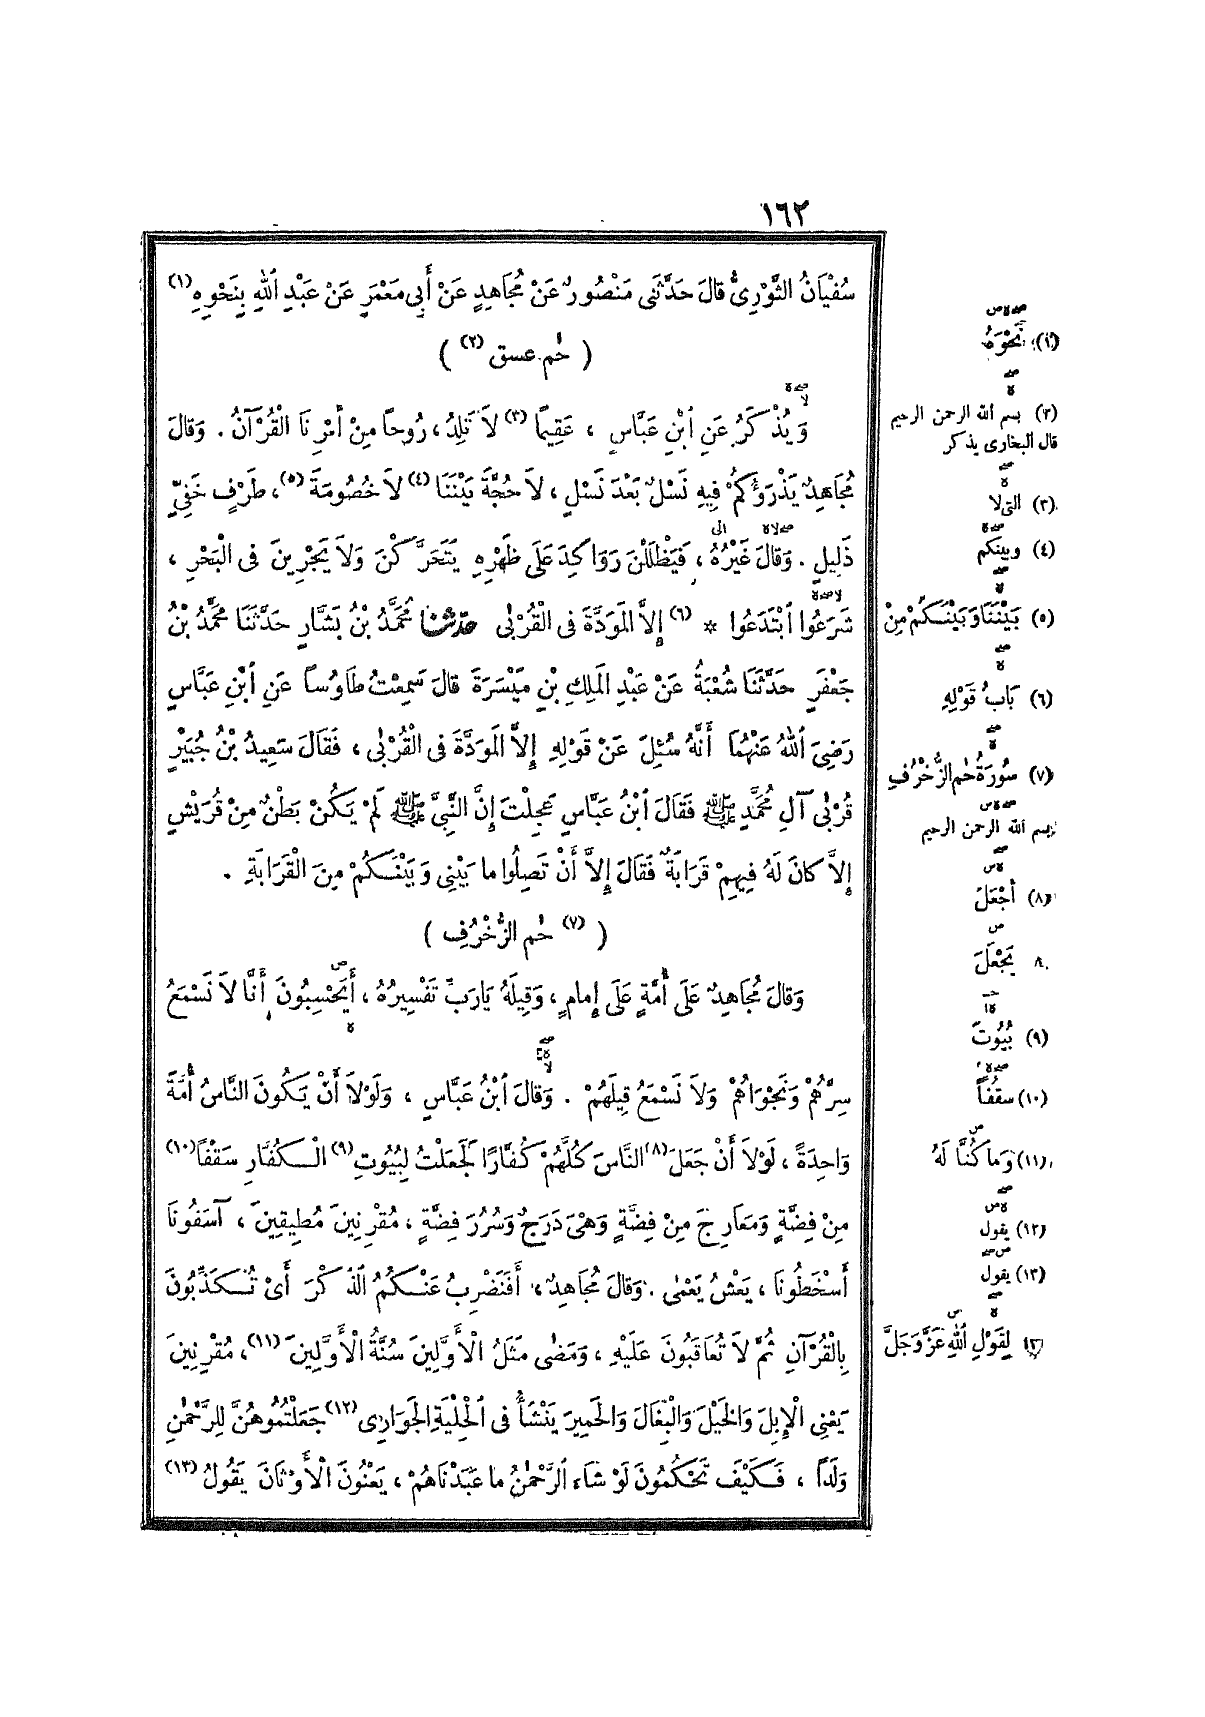 ١٦٢
سُفْيَانُ الثَّوْرِىُّ قالَ حَدَّثَنِى مَنْصُورٌ عَنْ مُجَاهِدٍ عَنْ أَبِى مَعْمَرٍ عَنْ عَبْدِ اللهِ بِنَحْوِهِ (١)
( حٰم عسق (٢) )
وَيُذْكَرُ عَنِ ابْنِ عَبَّاسٍ ، عَقِيمًا (٣) لاَ تَلِدُ ، رُوحاً مِنْ أَمْرِنَا الْقُرْآنُ . وَقالَ
مُجَاهِدٌ يَذْرَؤُكُمْ فِيهِ نَسْلٌ بَعْدَ نَسْلٍ ، لاَ حُجَّةَ بَيْنَنَا (٤) لاَ خُصُومَةَ (٥) ، طَرْفٍ خَفِىٍّ
ذَلِيلٍ . وَقالَ غَيْرُهُ ، فَيَظْلَلْنَ رَوَاكِدَ عَلَى ظَهْرِهِ يَتَحَرَّكْنَ وَلاَ يَجْرِينَ فى الْبَحْرِ ،
شَرَعُوا ابْتَدَعُوا * (٦) إِلاَّ المَوَدَّةَ فى الْقُرْبٰى حدثنا مُحَمَّدُ بْنُ بَشَّارٍ حَدَّثَنَا مُحَمَّدُ بْنُ
جَعْفَرٍ حَدَّثَنَا شُعْبَةُ عَنْ عَبْدِ المَلِكِ بْنِ مَيْسَرَةَ قالَ سَمِعْتُ طَاوُساً عَنِ ابْنِ عَبَّاسٍ
رَضِىَ اللهُ عَنْهُمَا أَنَّهُ سُئِلَ عَنْ قَوْلِهِ إِلاَّ المَوَدَّةَ فى الْقُرْبٰى ، فَقَالَ سَعِيدُ بْنُ جُبَيْرٍ
قُرْبٰى آلِ مُحَمَّدٍ ﷺ فَقَالَ ابْنُ عَبَّاسٍ عَجِلْتَ إِنَّ النَّبِىَّ ﷺ لَمْ يَكُنْ بَطْنٌ مِنْ قُرَيْشٍ
إِلاَّ كانَ لَهُ فِيهِمْ قَرَابَةٌ فَقَالَ إِلاَّ أَنْ تَصِلُوا ما بَيْنِى وَبَيْنَكُمْ مِنَ الْقَرَابَةِ .
( (٧) حٰم الزُّخْرُفِ )
وَقالَ مُجَاهِدٌ عَلَى أُمَّةٍ عَلَى إِمامٍ ، وَقِيلَهُ يَا رَبِّ تَفْسِيرُهُ ، أَيَحْسِبُونَ أَنَّا لاَ نَسْمَعُ
سِرَّهُمْ وَنَجْوَاهُمْ وَلاَ نَسْمَعُ قِيلَهُمْ . وَقالَ ابْنُ عَبَّاسٍ ، وَلَوْلاَ أَنْ يَكُونَ النَّاسُ أُمَّةً
وَاحِدَةً ، لَوْلاَ أَنْ جَعَلَ (٨) النَّاسَ كُلَّهُمْ كُفَّارًا لَجَعَلْتُ لِبُيُوتِ (٩) الْكُفَّارِ سَقْفًا (١٠)
مِنْ فِضَّةٍ وَمَعَارِجَ مِنْ فِضَّةٍ وَهْىَ دَرَجٌ وَسُرُرَ فِضَّةٍ ، مُقْرِنِينَ مُطِيقِينَ ، آسَفُونَا
أَسْخَطُونَا ، يَعْشُ يَعْمٰى . وَقالَ مُجَاهِدٌ ، أَفَنَضْرِبُ عَنْكُمُ الذِّكْرَ أَىْ تُكَذِّبُونَ
بِالْقُرْآنِ ثُمَّ لاَ تُعَاقَبُونَ عَلَيْهِ ، وَمَضٰى مَثَلُ الْأَوَّلِينَ سُنَّةُ الْأَوَّلِينَ (١١) ، مُقْرِنِينَ
يَعْنِى الْإِبِلَ وَالخَيْلَ وَالْبِغَالَ وَالحَمِيرَ يَنْشَأُ فى الْحِلْيَةِ الجَوَارِى (١٢) جَعَلْتُمُوهُنَّ لِلرَّحْمٰنِ
وَلَداً ، فَكَيْفَ تَحْكُمُونَ لَوْ شَاءَ الرَّحْمٰنُ ما عَبَدْنَاهُمْ ، يَعْنُونَ الْأَوْثَانَ يَقُولُ (١٣)
(١) نَحْوَهُ
(٢) بسم الله الرحمن الرحيم
قال البخارى يذكر
(٣) التى لا
(٤) وبينكم
(٥) بَيْنَنَا وَبَيْنَكُمْ مِنْ
(٦) بَابُ قَوْلِهِ
(٧) سُورَةُ حٰم الزُّخْرُفِ
بسم الله الرحمن الرحيم
(٨) أَجْعَلَ
٨ يَجْعَلَ
(٩) بُيُوتَ
(١٠) سقُفًا
(١١) وَما كُنَّا لَهُ
(١٢) يقول
(١٣) يقول
١٣ لِقَوْلِ اللهِ عَزَّ وَجَلَّ